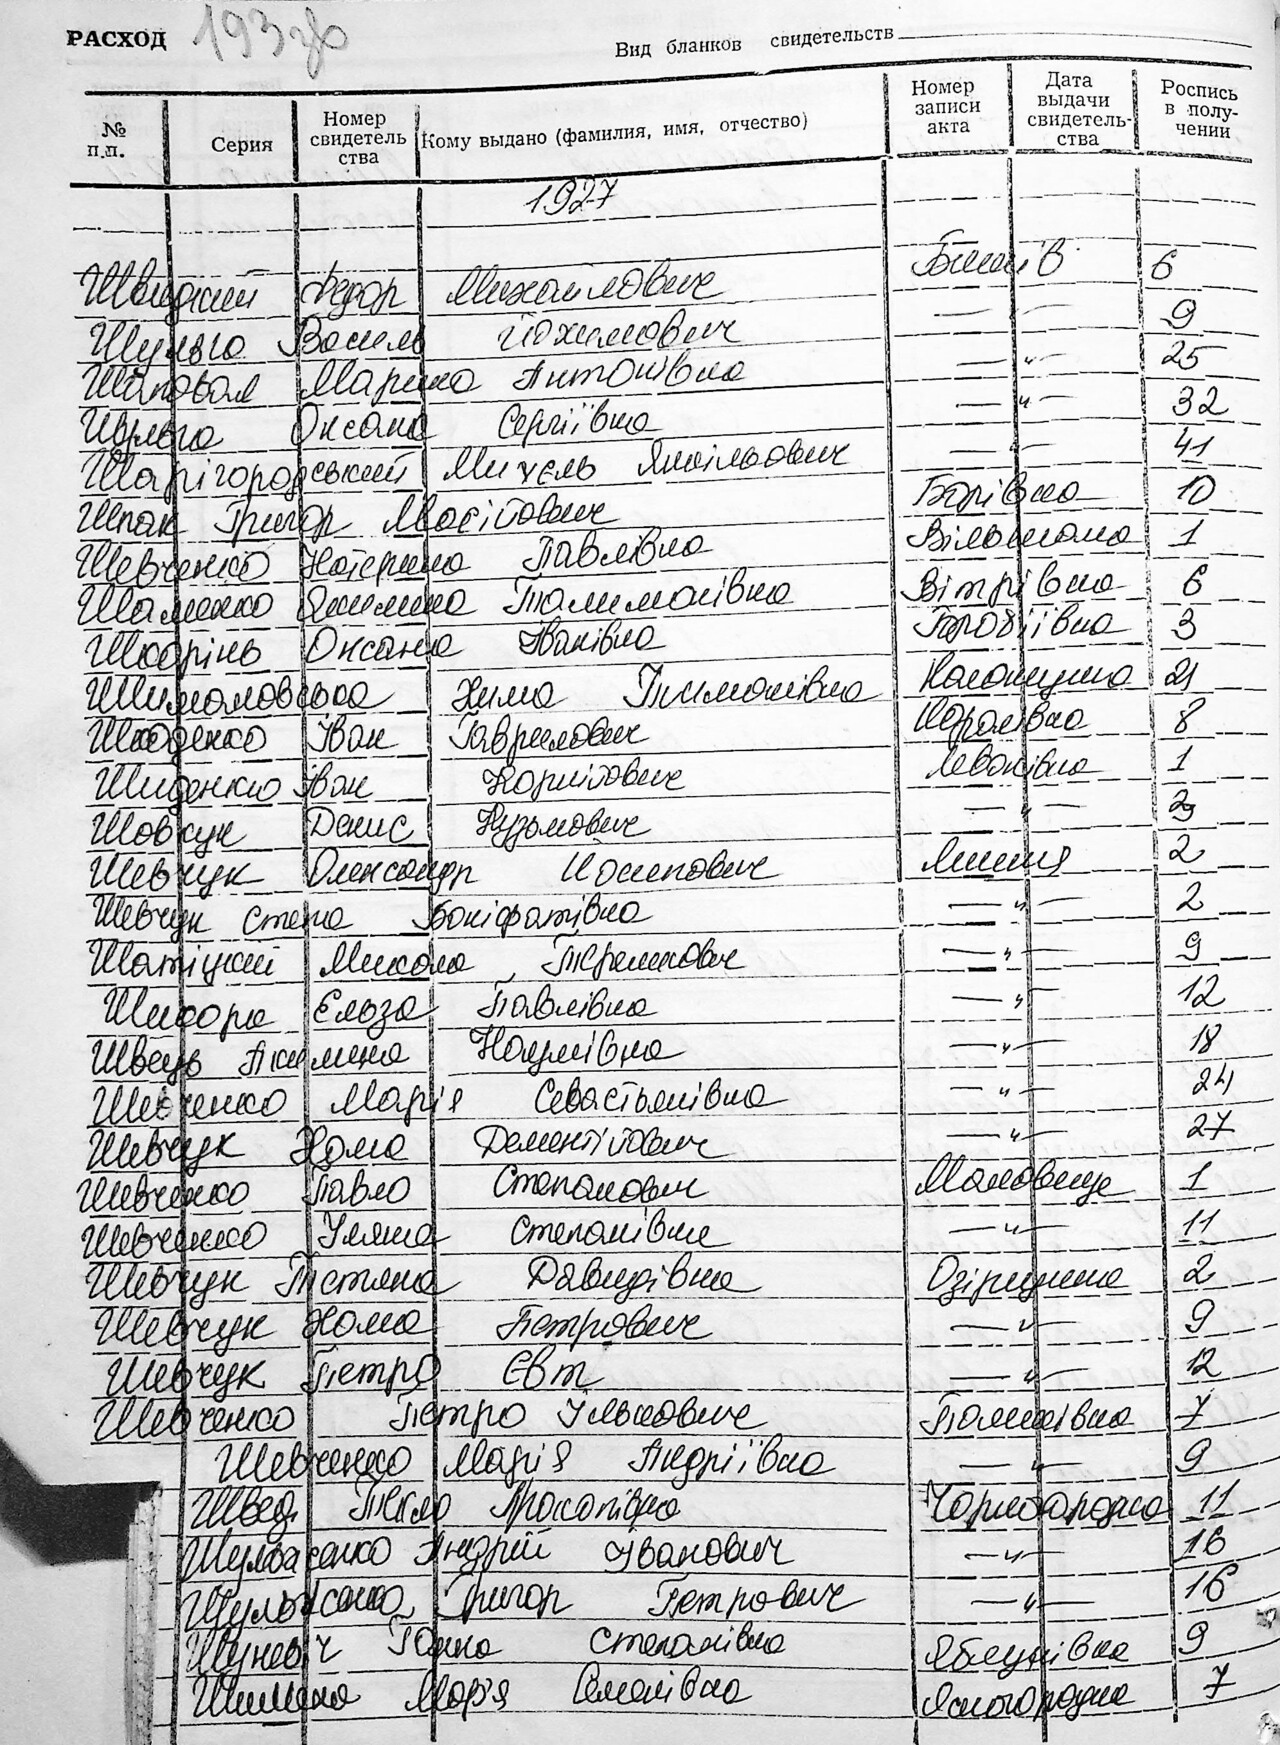 РАСХОД 193зв
Вид бланков свидетельств
№ п.п. Серия Номер свидетельства Кому выдано (фамилия, имя, отчество) Номер записи акта Дата выдачи свидетельства Роспись в получении
1927
Швидкий Федор Михайлович Бишів 6
Шульга Василь Йохимович — " — 9
Шаповал Марина Антонівна — " — 25
Шульга Оксана Сергіївна — " — 32
Шарігородський Михель — " — 41
Шпак Григор Мосійович Борівка 10
Шевченко Катерина Павлівна Вільшана 1
Шаменко Якилина Талимонівна Вітрівка 6
Шкарінь Оксана Іванівна 3
Шимановська Хима Тимонівна Колонщина 21
Шкоденко Іван Гаврилович Королівка 8
Шиденко Іван Корнійович Леванівка 1
Шовкун Денис Кузьмович — " — 2
Шевчук Олександр Йосипович Лишня 2
Шевчук Степа Боніфатівна — " — 2
Шатіцкий Микола — " — 9
Шикора Ельза Павлівна — " — 12
Швець Акилина Наумівна — " — 18
Шевченко Марія Севастьянівна — " — 24
Шевчук Хома Дементійович — " — 27
Шевченко Павло Степанович Маковище 1
Шевченко Уляна Степанівна — " — 11
Шевчук Тетяна Давидівна Озірщина 2
Шевчук Хома Петрович — " — 9
Шевчук Петро Євт — " — 12
Шевченко Петро Улянович 7
Шевченко Марія Андріївна — " — 9
Швед Текля Прокопівна Чорногородка 11
Шульженко Андрій Іванович — " — 16
Шульженко Григор Петрович — " — 16
Шуневич Ганна Степанівна Яблунівка 9
Мар'я Семенівна Ясногородка 7